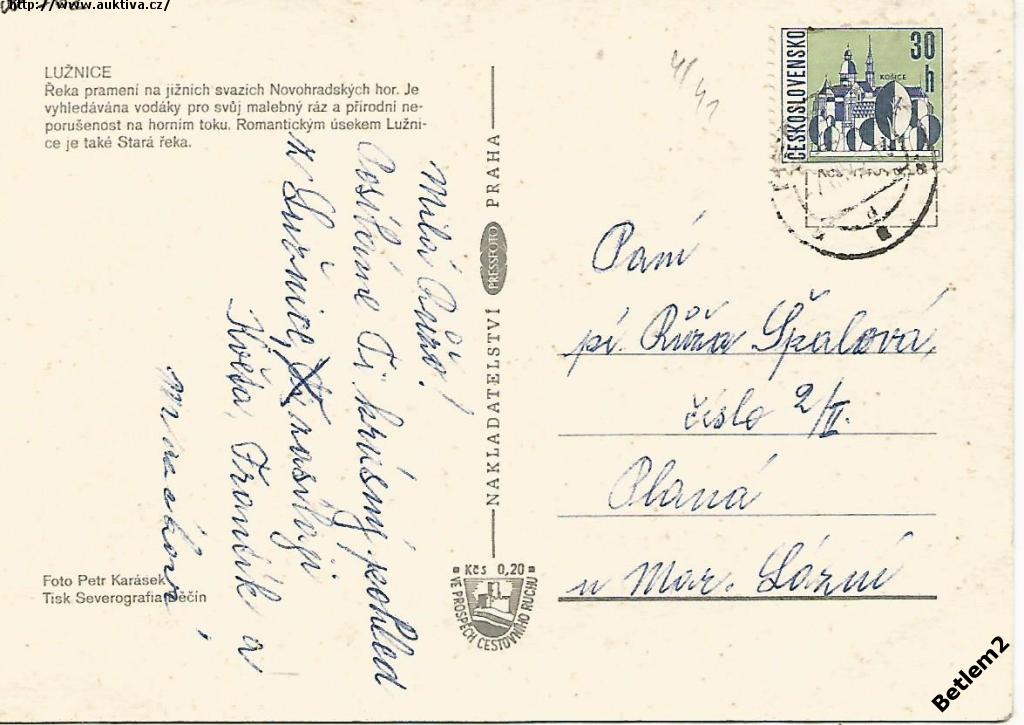 http://www.auktiva.cz/
LUŽNICE
Řeka pramení na jižních svazích Novohradských hor. Je
vyhledávána vodáky pro svůj malebný ráz a přírodní ne-
porušenost na horním toku. Romantickým úsekem Lužni-
ce je také Stará řeka.
Milá Růžo!
Posíláme Ti krásný pohled
z Lužnice,
Květa, Frantík a
Foto Petr Karásek
Tisk Severografia Děčín
NAKLADATELSTVÍ PRESSFOTO PRAHA
Kčs 0,20
VE PROSPĚCH CESTOVNÍHO RUCHU
4/41
ČESKOSLOVENSKO
30 h
KOŠICE
Paní
pí. Růža Špalová,
číslo 2/II.
Planá
u Mar. Lázní
Betlem2